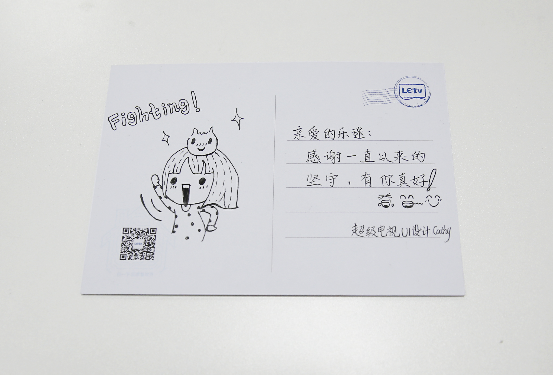 Fighting!
LETV
亲爱的乐迷：
感谢一直以来的
坚守，有你真好！
超级电视UI设计Cathy